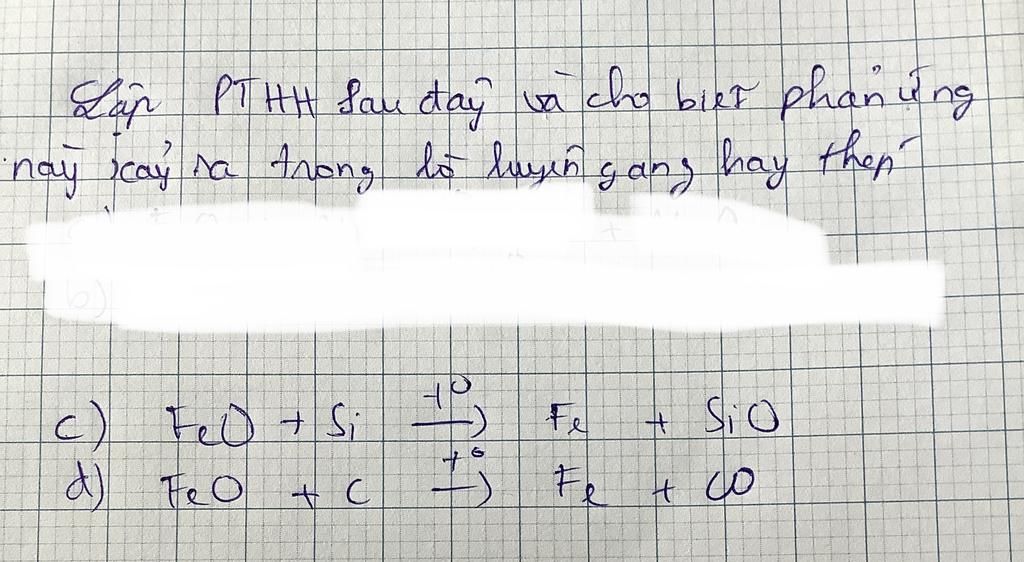 Lập PTHH sau đây và cho biết phản ứng
này xảy ra trong lò luyện gang hay thép
c) FeO + Si t° → Fe + SiO
d) FeO + C t° → Fe + CO